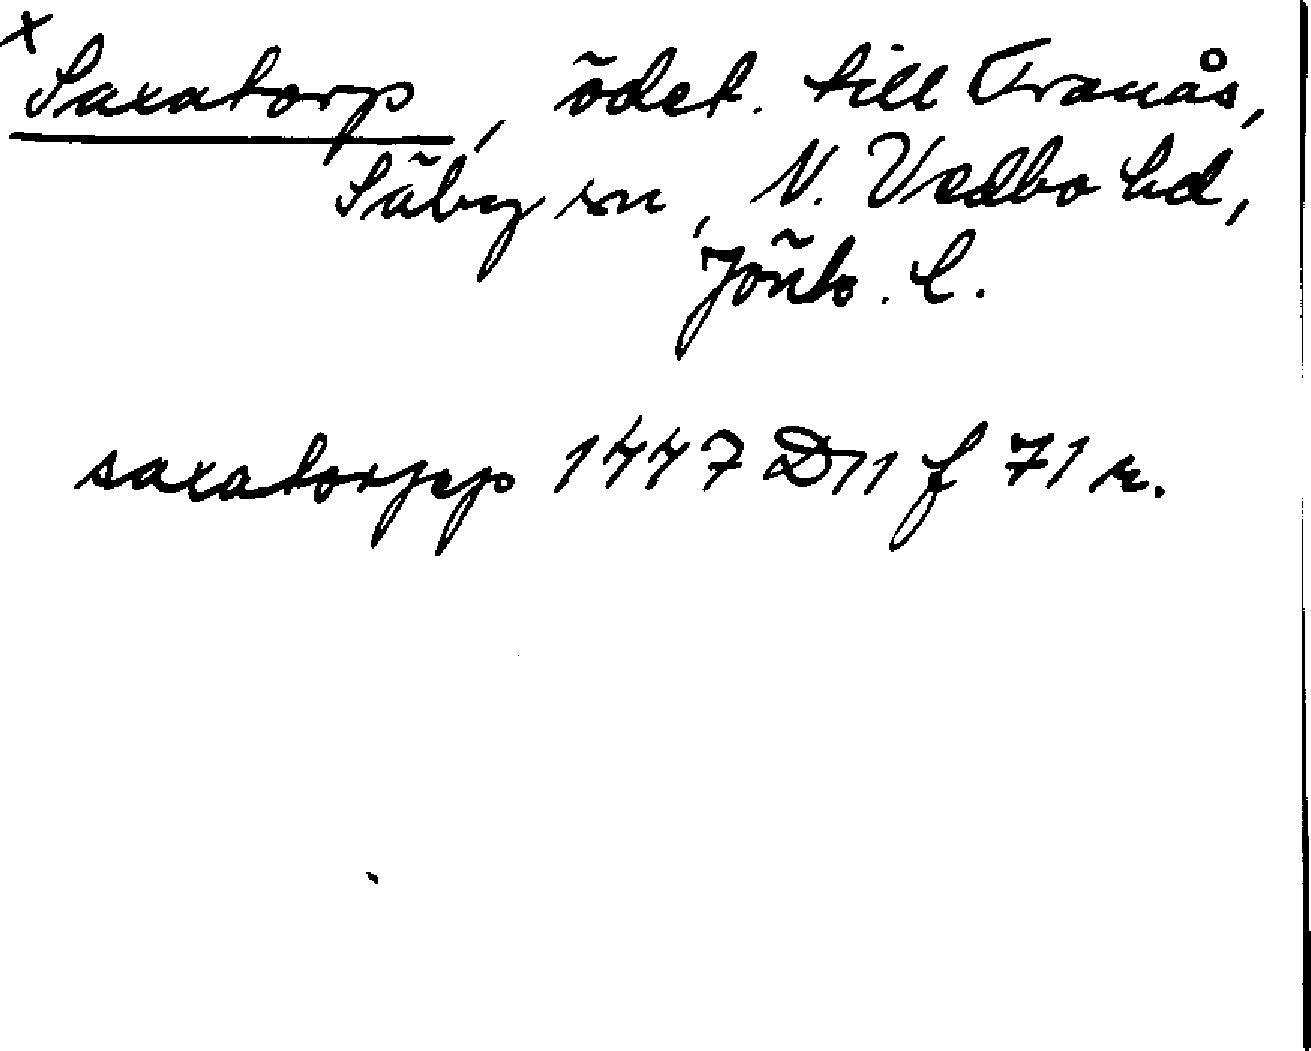 x Saxatorp, ödet. till Tranås,
Säby sn, N. Vedbo hd,
Jönk. l.
saxatorpp 1447 D11 f 71 r.